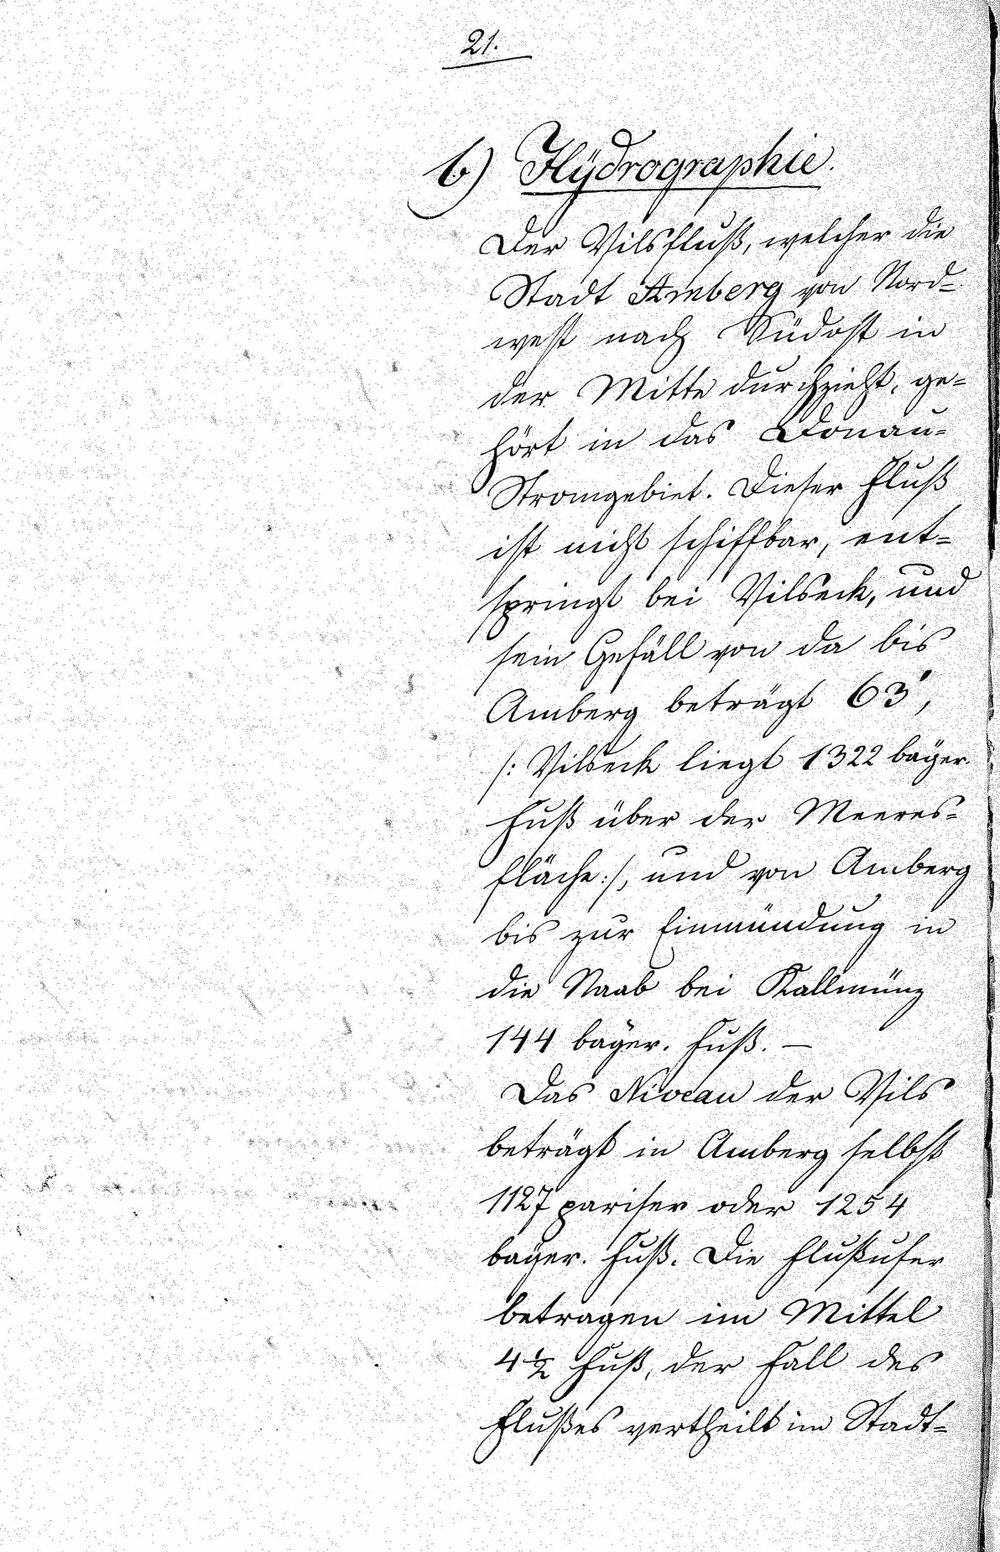 21.
b) Hÿdrographie.
Der Vilsfluß, welcher die
Stadt Amberg von Nord=
west nach Südost in
der Mitte durchzieht, ge=
hört in das Donau=
Stromgebiet. Dieser Fluß
ist nicht schiffbar, ent=
springt bei Vilseck, und
sein Gefäll von da bis
Amberg beträgt 63',
/: Vilseck liegt 1322 baÿer.
Fuß über der Meeres=
fläche :/, und von Amberg
bis zur Einmündung in
die Naab bei Kallmünz
144 baÿer. Fuß. —
Das Niveau der Vils
beträgt in Amberg selbst
1127 pariser oder 1254
baÿer. Fuß. Die Flußufer
betragen im Mittel
4½ Fuß, der Fall des
Flußes vertheilt im Stadt=